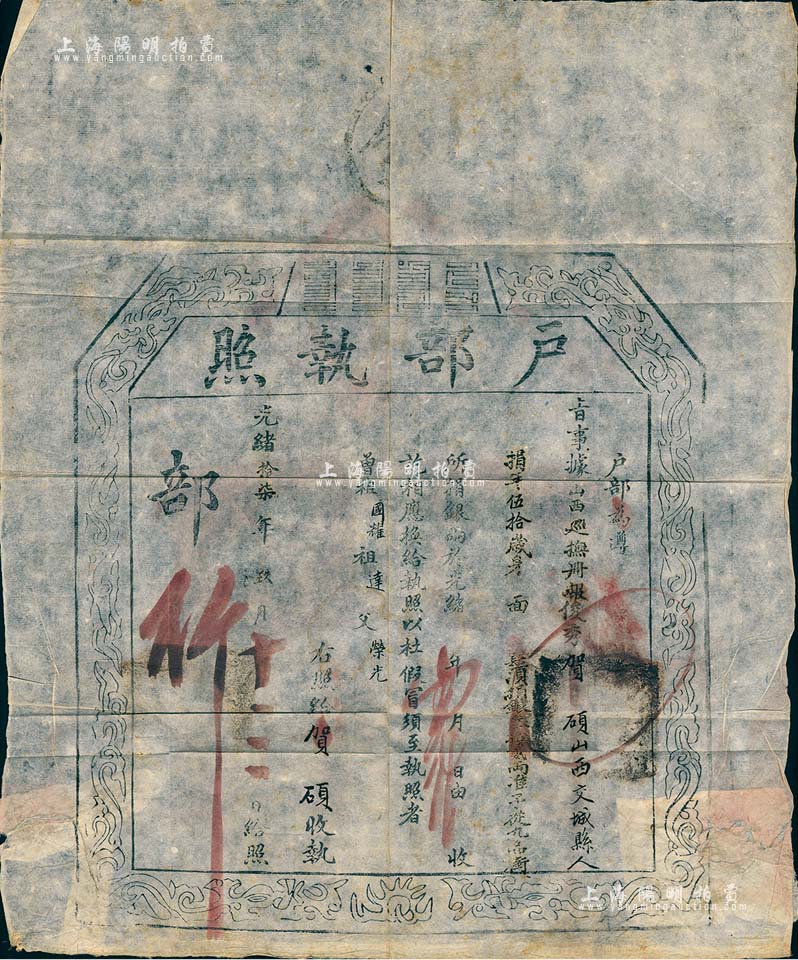 上海陽明拍賣
www.yangmingauction.com
戶部執照
戶部為遵
旨事據山西巡撫冊報俊秀賀碩山西交城縣人
捐年伍拾歲身面
所捐銀兩於光緒年月日由收
訖相應換給執照以杜假冒須至執照者
曾祖國耀祖達父榮光
右照給賀碩收執
光緒拾柒年玖月十二日給照
部
上海陽明拍賣
www.yangmingauction.com
上海陽明拍賣
www.yangmingauction.com